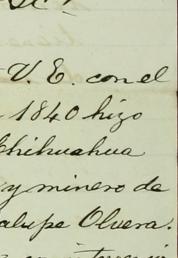 V. E. con el
1840 hizo
Chihuahua
y minero de
alupe Olvera.